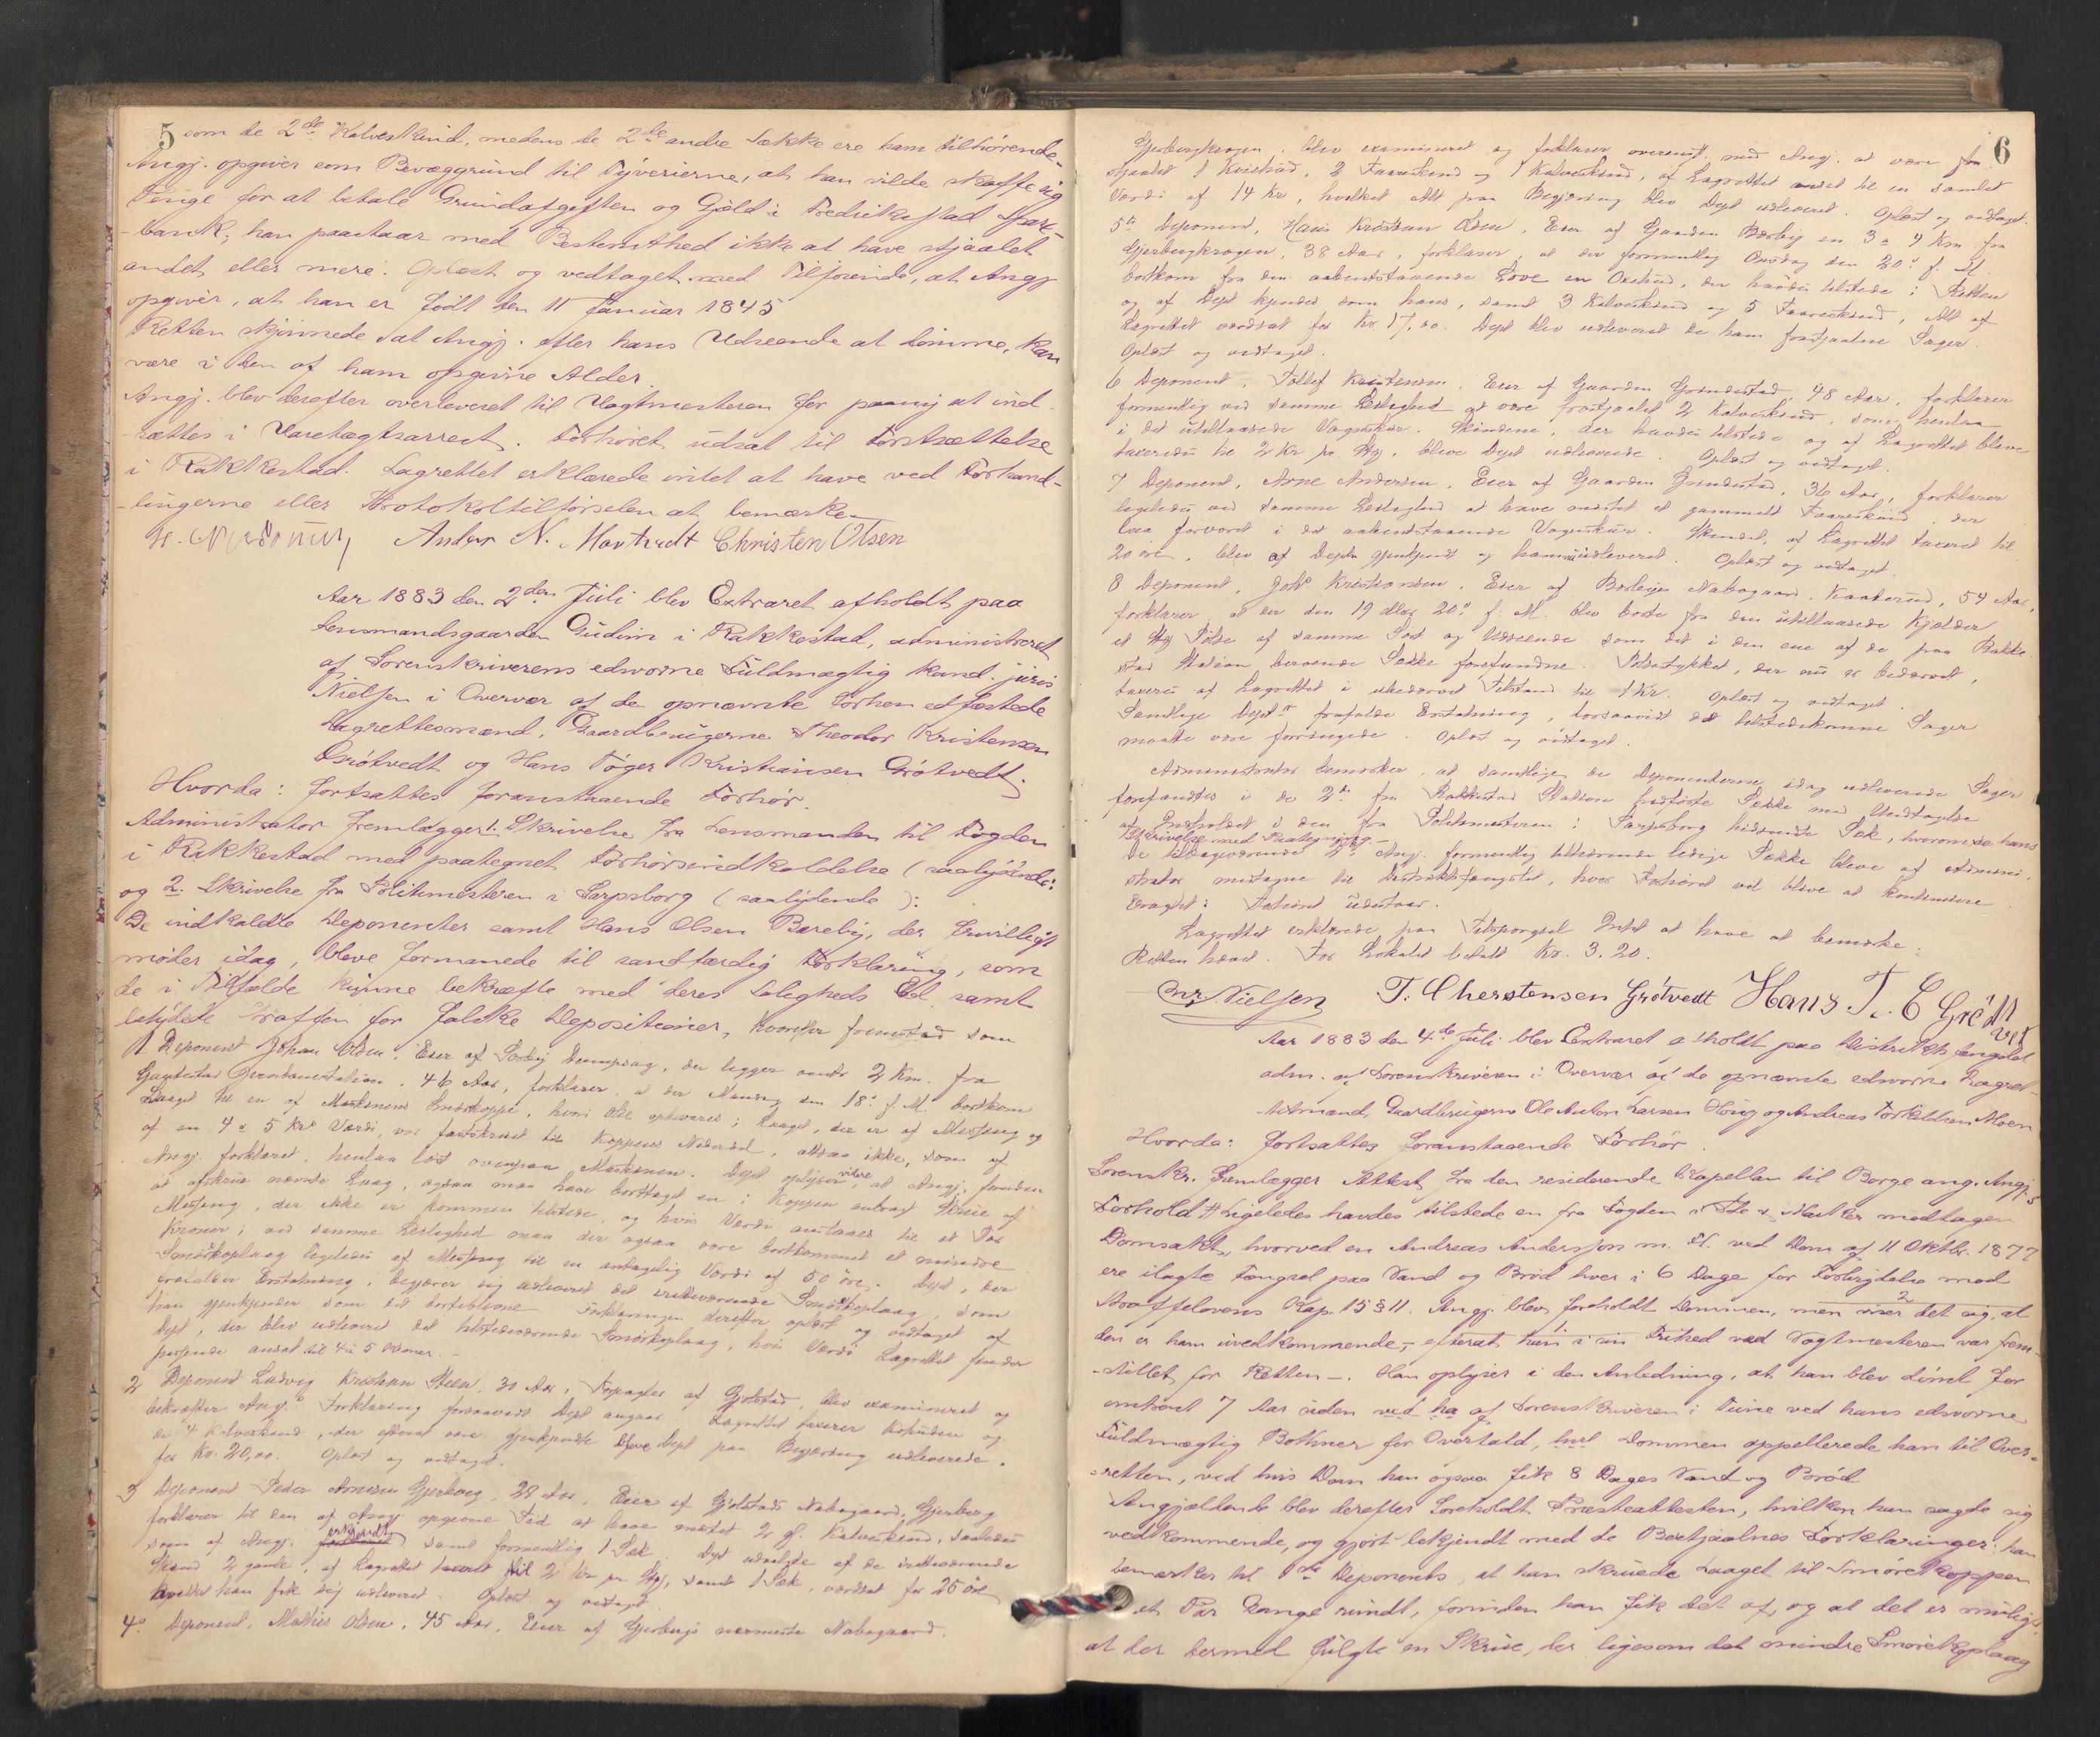 5
som de 2de Kalveskind, medens de 2de andre Sække ere ham tilhørende.
Angj. opgiver som Bevæggrund til Tyverierne, at han vilde skaffe sig
Penge for at betale Grundafgiften og Gjæld i Fredrikstad Spare-
-bank; han paastaar med Bestemthed ikke at have stjaalet
andet eller mere. Oplæst og vedtaget med Tilføiende, at Angj
opgiver, at han er født den 11 Januar 1845
Retten skjønnede at Angj. efter hans Udseende at dømme, kan
være i den af ham opgivne Alder.
Angj. blev derefter overleveret til Vagtmesteren for paany at ind-
-sættes i Varetægtsarrest. Forhøret udsat til Fortsættelse
i Rakkestad. Lagrettet erklærede intet at have ved Forhand-
-lingerne eller Protokoltilførselen at bemærke
Anders N. Christen Olsen
Aar 1883 den 2den Juli blev Extraret afholdt paa
Lensmandsgaarden Gudim i Rakkestad, administreret
af Sorenskriverens edsvorne Fuldmægtig kand. juris
Nielsen i Overvær af de opnævnte forhen edfæstede
Lagrettesmænd, Gaardbrugerne Theodor Kristensen
Grøtvedt og Hans Kristiansen Grøtvedt.
Hvorda: fortsattes foranstaaende Forhør.
Administrator fremlægger 1. Skrivelse fra Lensmanden til Fogden
i Rakkestad med paategnet Forhørsindkaldelse (saalydende:
og 2. Skrivelse fra Politimesteren i Sarpsborg (saalydende ):
De indkaldte Deponenter samt Hans Olsen Bærby, der frivilligt
møder idag, bleve formanede til sandfærdig Forklaring, som
de i Tilfælde kunne bekræfte med deres Saligheds Ed samt
betydet Straffen for falske Depositioner, hvorefter fremstod som
1 Deponent Johan Olsen, Eier af Dampsag, der ligger omtr 2 Km. fra
46 Aar, forklarer at der Mandag den 18de f. M. bortkom
Laaget til en af Maskinens Smørekoppe, hvori Olie opbevares; Laaget, der er af Messing og
af en 4 a 5 Krs Værdi, var fastskruet til Koppens Nederdel, altsaa ikke, som af
Angj. forklaret, henlaa løst ovenpaa Maskinen. Dept oplyser videre, at Angj. foruden
at afskrue nævnte Laag, ogsaa maa have borttaget en i Koppen anbragt Skrue af
Messing, der ikke er kommen tilstede, og hvis Værdi antages til et Par
Kroner; ved samme Leilighed maa der ogsaa være bortkommet et mindre
Smørkoplaag ligeledes af Messing til en antagelig Værdi af 50 øre. Dept, der
frafalder Erstatning, begjærer sig udleveret det tilstedeværende Smørkoplaag, som
han gjenkjender som det bortblevne. Forklaringen derefter oplæst og vedtaget af
Dept, der blev udleveret det tilstedeværende Smørkoplaag, hvis Værdi Lagrettet finder
passende ansat til 4 a 5 Kroner.
2 Deponent Ludvig Kristian Steen, 30 Aar, Forpagter af Gjølstad, blev examineret og
bekræfter Angj.s Forklaring forsaavidt Dept angaar. Lagrettet taxerer Kohuden og
de 4 Kalveskind, der efterat være gjenkjendte bleve Dept paa Begjæring udleverede,
for Kr. 20,00. Oplæst og vedtaget.
3 Deponent Peder Arnesen Gjerberg, 28 Aar, Eier af Gjølstads Nabogaard, Gjerberg
forklarer til den af Angj. opgivne Tid at have mistet 2 gl. Kalveskind, saaledes
som af Angj. erkjendt samt formentlig 1 Sæk. Dept udvalgte af de
Skind 2 gamle, af Lagrettet taxeret til 2 Kr pr Stk, samt 1 Sæk, værdsat for 25 øre
hvilket han fik sig udleveret. Oplæst og vedtaget.
4de Deponent, Mathis Olsen, 45 Aar, Eier af Gjerbergs nærmeste Nabogaard.
6
Gjerbergkragen, blev examineret og forklarer overenst. med Angj. at være fra
stjaalet 1 Kviehud, 2 Faareskind og 1 Kalveskind, af Lagrettet ansat til en samlet
Værdi af 14 Kr, hvilket Alt paa Begjæring blev Dept udleveret. Oplæst og vedtaget.
5te Deponent, Hans Kristian Olsen, Eier af Gaarden Bærby en 3 a 4 Km. fra
Gjerbergkragen, 38 Aar, forklarer, at der formentlig Onsdag den 20de f. M.
bortkom fra den aabentstaaende Løve en Oxehud, der havdes tilstede i Retten
og af Dept kjendes som hans, samt 3 Kalveskind og 5 Faareskind, Alt af
Lagrettet værdsat for Kr. 17,00. Dept blev udleveret de ham frastjaalne Sager.
Oplæst og vedtaget.
6 Deponent, Tollef Kristensen, Eier af Gaarden Grindstad, 48 Aar, forklarer
formentlig ved samme Leilighed at være frastjaalet 2 Kalveskind, som henlaa
i det uaflaasede Vognskur. Skindene, der havdes tilstede og af Lagrettet bleve
taxerede til 2 Kr pr Stk, bleve Dept udleverede. Oplæst og vedtaget.
7 Deponent, Arne Andersen, Eier af Gaarden Grindstad, 36 Aar, forklarer
ligeledes ved samme Leilighed at have mistet et gammelt Faareskind, der
laa forvaret i det aabentstaaende Vognskur. Skindet, af Lagrettet taxeret til
20 øre, blev af Dept gjenkjendt og ham udleveret. Oplæst og vedtaget.
8 Deponent, Johs Kristiansen, Eier af Bærbys Nabogaard, Kaaterud, 54 Aar,
forklarer at der den 19 eller 20de f. M. blev borte fra den uaflaasede Kjælder
et Stk Pølse af samme Sort og Udseende som det i den ene af de paa Rakke-
stad Station beroende Sække forefundne. Pølsestykket, der nu er bedærvet,
taxeres af Lagrettet i ubedærvet Tilstand til 1 Kr. Oplæst og vedtaget.
Samtlige Dept.r frafaldt Erstatning, forsaavidt de tilstedekomne Sager
maatte være forringede. Oplæst og vedtaget.
Administrator bemærker, at samtlige de Deponenterne idag udleverede Sager
forefandtes i de 2de fra Rakkestad Station hidførte Sække med Undtagelse
af Indholdet i den fra Politimesteren i Sarpsborg hidsendte Sæk, hvorom se hans
Skrivelse med Paategning.
De tilbageværende Angj. formentlig tilhørende ledige Sække bleve af Admini-
strator mottagne til Distriktsfængslet, hvor Forhøret vil blive at kontinuere
Eragtet: Forhøret udstaar.
Lagrettet erklærede paa Tilspørgsel Intet at have at bemærke.
Retten hævet. For Lokalet betalt Kr. 3,20.
Nielsen T. Cherstensen Grøtvedt Hans T. E Grøtt
vet
Aar 1883 den 4de Juli blev Extraret afholdt paa Distriktsfængslet
adm. af Sorenskriveren i Overvær af de opnævnte edsvorne Lagret-
-tesmænd, Gaardbrugerne Ole Anton Larsen Haug og Andreas Torkildsen Moen
Hvorda: fortsattes foranstaaende Forhør.
Sorenskr. fremlægger Attest fra den residerende Kapellan til Borge ang. Angj.s
Forhold # Ligeledes havdes tilstede en fra Fogden i Ide & Marker modtagen
Domsakt, hvorved en Andreas Anderssøn m. Fl. ved Dom af 11 Oktbr. 1877
ere ilagte Fængsel paa Vand og Brød hver i 6 Dage for Forbrydelse mod
Straffelovens Kap. 15 § 11. Angj. blev foreholdt Dommen, men viser det sig, at
den er ham uvedkommende, - efterat han i sin Frihed ved Vagtmesteren var frem-
-stillet for Retten -. Han oplyser i den Anledning, at han blev dømt for
omtrent 7 Aar siden ved af Sorenskriveren i Tune ved hans edsvorne
Fuldmægtig Bothner for Overfald, hvil Dommen appellerede han til Over-
-retten, ved hvis Dom han ogsaa fik 8 Dages Vand og Brød
Angjældende blev derefter foreholdt Præsteattesten, hvilken han sagde sig
vedkommende, og gjort bekjendt med de Bestjaalnes Forklaringer: han
bemærker til 1ste Deponents, at han skruede Laaget til Smørekoppen
et Par Gange rundt, forinden han fik det af, og at det er muligt
at der dermed fulgte en Skrue, der ligesom det mindre Smørekoplaag